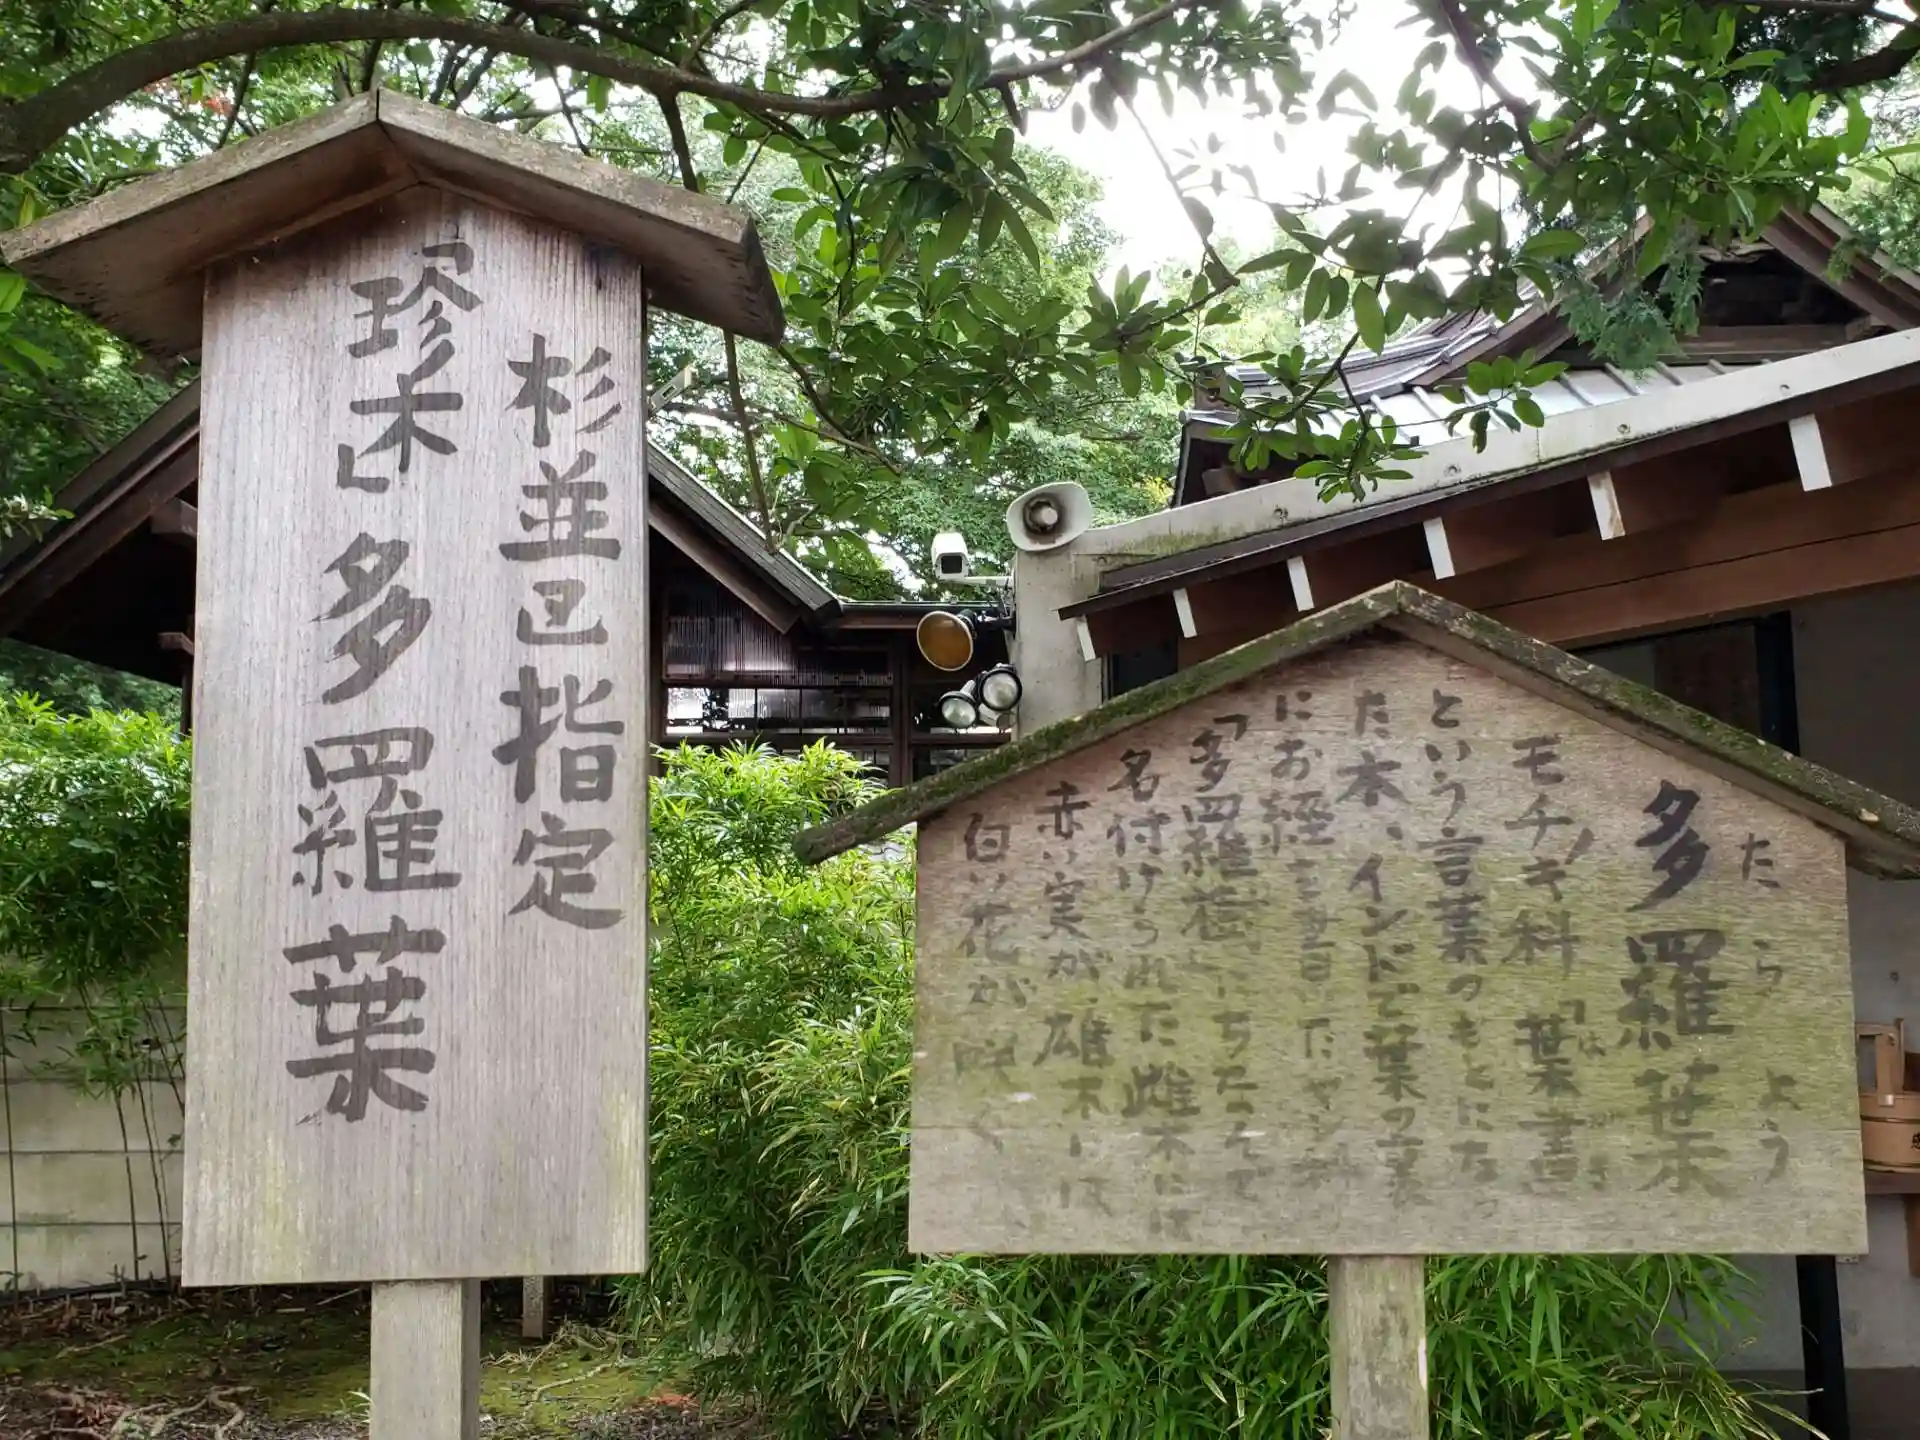 杉並区指定
「珍木」多羅葉
たらよう
多羅葉
モチノキ科「葉書
という言葉のもとになっ
た木、インドで葉の裏
にお経を書いたヤシ科
「多羅樹」にちなんで
名付けられた雌木には
赤い実が、雄木には
白い花が咲く